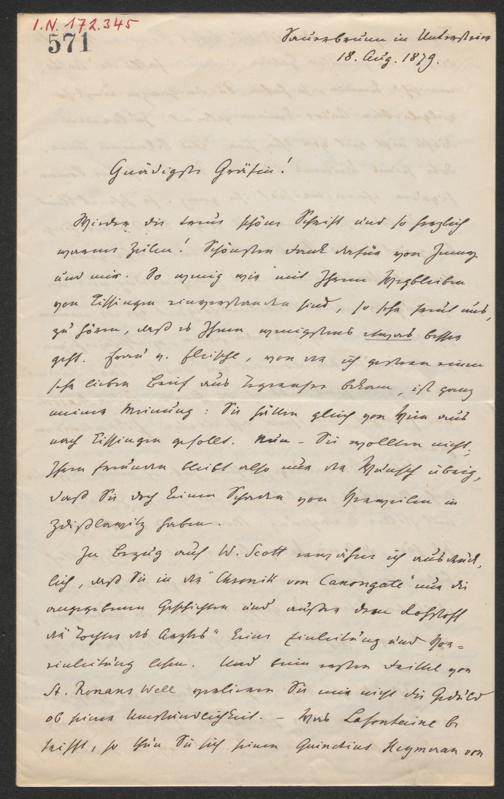 I.N. 172.345
571
Sauerbrunn in Untersteier
18. Aug. 1879.
Gnädigste Gräfin!
Wieder die liebe schöne Schrift und so herzlich
warme Zeilen! Schönsten Dank dafür von Jenny
und mir. So wenig wir mit Ihrem Wegbleiben
von Kissingen einverstanden sind, so sehr freut uns,
zu hören, daß es Ihnen wenigstens etwas besser
geht. Frau v. Fleischl, von der ich gestern einen
sehr lieben Brief aus Tegernsee bekam, ist ganz
meiner Meinung: Sie hätten gleich von Wien aus
nach Kissingen gesollt. Nun – Sie wollten nicht,
Ihren Freunden bleibt also nur der Wunsch übrig,
daß Sie doch keinen Schaden vom Verweilen in
Zdißlawitz haben.
In Bezug auf W. Scott erwähne ich ausdrück-
lich, daß Sie in der "Chronik von Canongate" nur die
angegebenen Geschichten und außer dem
der Tochter des Arztes" keine Einleitung und Vor-
einleitung lesen. Und beim ersten Drittel von
St. Ronans Well verlieren Sie mir nicht die Geduld
ob seiner Umständlichkeit. – Was Lafontaine be
trifft, so thun Sie sich seinen Quinctius Heymeran von